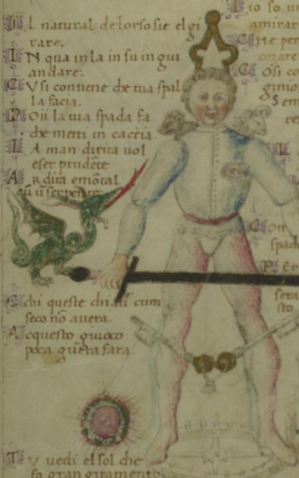 L natural de l orso sie el gi
rare.
In qua in la in su in giu
andare.
Cusi contiene che tua spal
la facia.
Poi la tua spada fa
che metti in caccia.
La man dirita vol
eser prudẽte
Ardita e mõtal
serpente
Chi queste chiavi cum
seco nõ avera.
A cquesto giuoco
poca guera fara.
Tu vedi el sol che
fa gran giramento
io so
amirar
Che per
Cosi co
Con
spada
sto